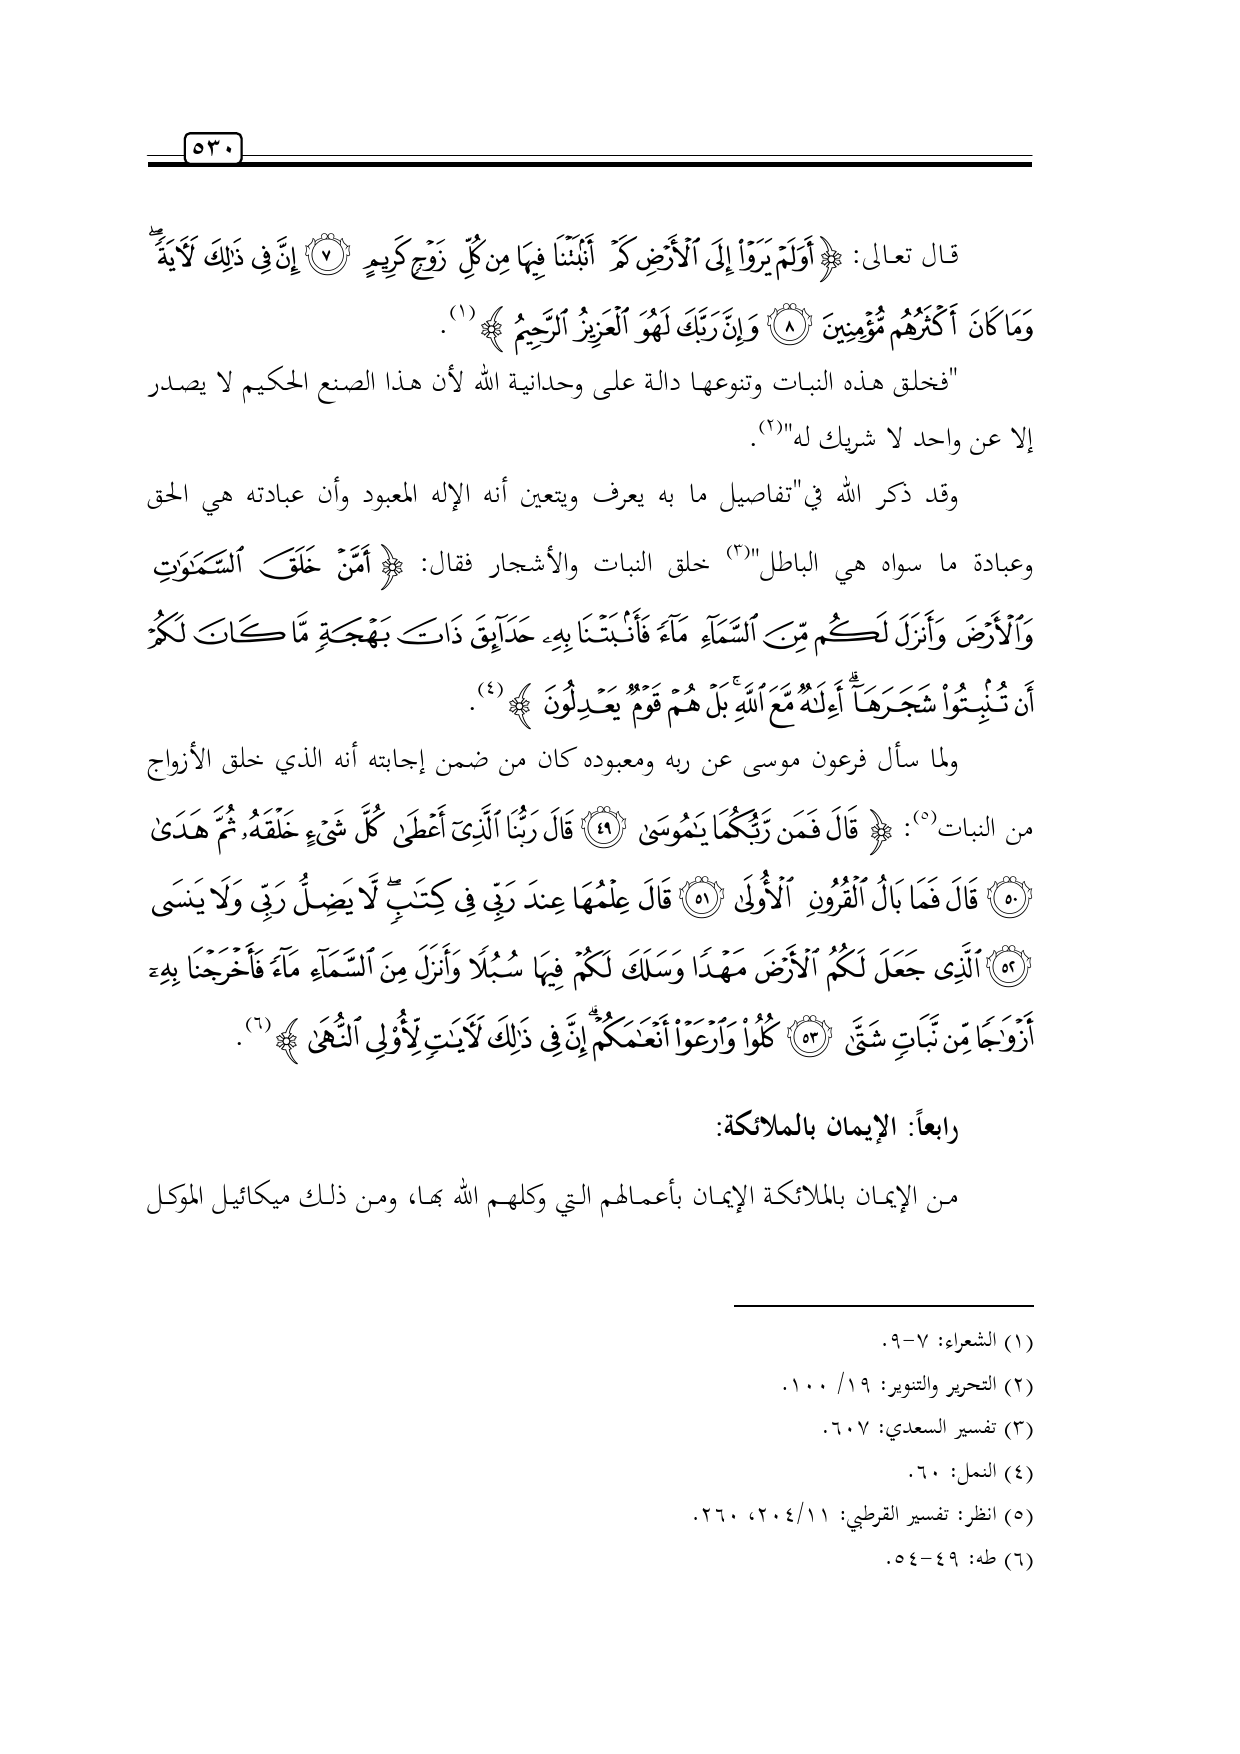 ٥٣٠
قال تعالى: ﴿ أَوَلَمْ يَرَوْا۟ إِلَى ٱلْأَرْضِ كَمْ أَنۢبَتْنَا فِيهَا مِن كُلِّ زَوْجٍ كَرِيمٍ ٧ إِنَّ فِى ذَٰلِكَ لَـَٔايَةً ۖ
وَمَا كَانَ أَكْثَرُهُم مُّؤْمِنِينَ ٨ وَإِنَّ رَبَّكَ لَهُوَ ٱلْعَزِيزُ ٱلرَّحِيمُ ﴾(١).
"فخلق هذه النبات وتنوعها دالة على وحدانية الله لأن هذا الصنع الحكيم لا يصدر
إلا عن واحد لا شريك له"(٢).
وقد ذكر الله في"تفاصيل ما به يعرف ويتعين أنه الإله المعبود وأن عبادته هي الحق
وعبادة ما سواه هي الباطل"(٣) خلق النبات والأشجار فقال: ﴿ أَمَّنْ خَلَقَ ٱلسَّمَٰوَٰتِ
وَٱلْأَرْضَ وَأَنزَلَ لَكُم مِّنَ ٱلسَّمَآءِ مَآءً فَأَنۢبَتْنَا بِهِۦ حَدَآئِقَ ذَاتَ بَهْجَةٍ مَّا كَانَ لَكُمْ
أَن تُنۢبِتُوا۟ شَجَرَهَآ ۗ أَءِلَٰهٌ مَّعَ ٱللَّهِ ۚ بَلْ هُمْ قَوْمٌ يَعْدِلُونَ ﴾(٤).
ولما سأل فرعون موسى عن ربه ومعبوده كان من ضمن إجابته أنه الذي خلق الأزواج
من النبات(٥): ﴿ قَالَ فَمَن رَّبُّكُمَا يَٰمُوسَىٰ ٤٩ قَالَ رَبُّنَا ٱلَّذِىٓ أَعْطَىٰ كُلَّ شَىْءٍ خَلْقَهُۥ ثُمَّ هَدَىٰ
٥٠ قَالَ فَمَا بَالُ ٱلْقُرُونِ ٱلْأُولَىٰ ٥١ قَالَ عِلْمُهَا عِندَ رَبِّى فِى كِتَٰبٍ ۖ لَّا يَضِلُّ رَبِّى وَلَا يَنسَى
٥٢ ٱلَّذِى جَعَلَ لَكُمُ ٱلْأَرْضَ مَهْدًا وَسَلَكَ لَكُمْ فِيهَا سُبُلًا وَأَنزَلَ مِنَ ٱلسَّمَآءِ مَآءً فَأَخْرَجْنَا بِهِۦٓ
أَزْوَٰجًا مِّن نَّبَاتٍ شَتَّىٰ ٥٣ كُلُوا۟ وَٱرْعَوْا۟ أَنْعَٰمَكُمْ ۗ إِنَّ فِى ذَٰلِكَ لَـَٔايَٰتٍ لِّأُو۟لِى ٱلنُّهَىٰ ﴾(٦).
رابعاً: الإيمان بالملائكة:
من الإيمان بالملائكة الإيمان بأعمالهم التي وكلهم الله بها، ومن ذلك ميكائيل الموكل
(١) الشعراء: ٧-٩.
(٢) التحرير والتنوير: ١٩/ ١٠٠.
(٣) تفسير السعدي: ٦٠٧.
(٤) النمل: ٦٠.
(٥) انظر: تفسير القرطبي: ٢٠٤/١١، ٢٦٠.
(٦) طه: ٤٩-٥٤.